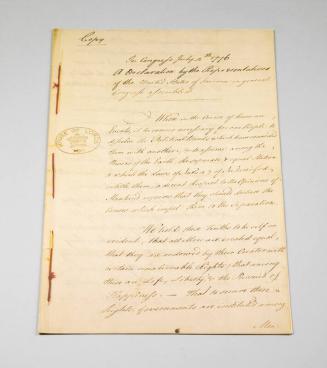 Copy
In Congress July 4th 1776
A Declaration by the Representatives
of the United States of America in general
Congress assembled
When in the Course of human
Events, it becomes necessary for one People to
dissolve the Political Bands which have connected
them with another, & to assume among the
Powers of the Earth, the separate & equal Station
to which the Laws of Nature & of Nature's God
entitle them, a decent Respect to the Opinions of
Mankind requires that they should declare the
Causes which impel them to the Separation.
HOUSE OF LORDS
We hold these Truths to be self-
evident, that all Men are created equal,
that they are endowed by their Creator with
certain unalienable Rights; that among
these are Life, Liberty & the Pursuit of
Happiness. — That to secure these
Rights, Governments are instituted among
Men